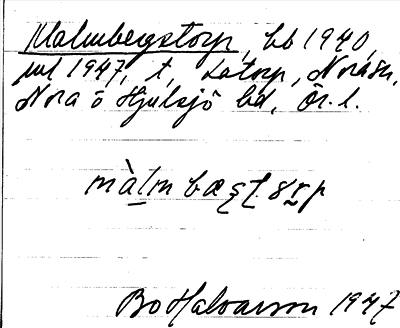 Malmbergstorp, hb 1940,
ml 1947, t, Latorp, Norask,
Nora o Hjulsjö bd, Ör. l.
màlm bægst.srp
Bo Halvarson 1947